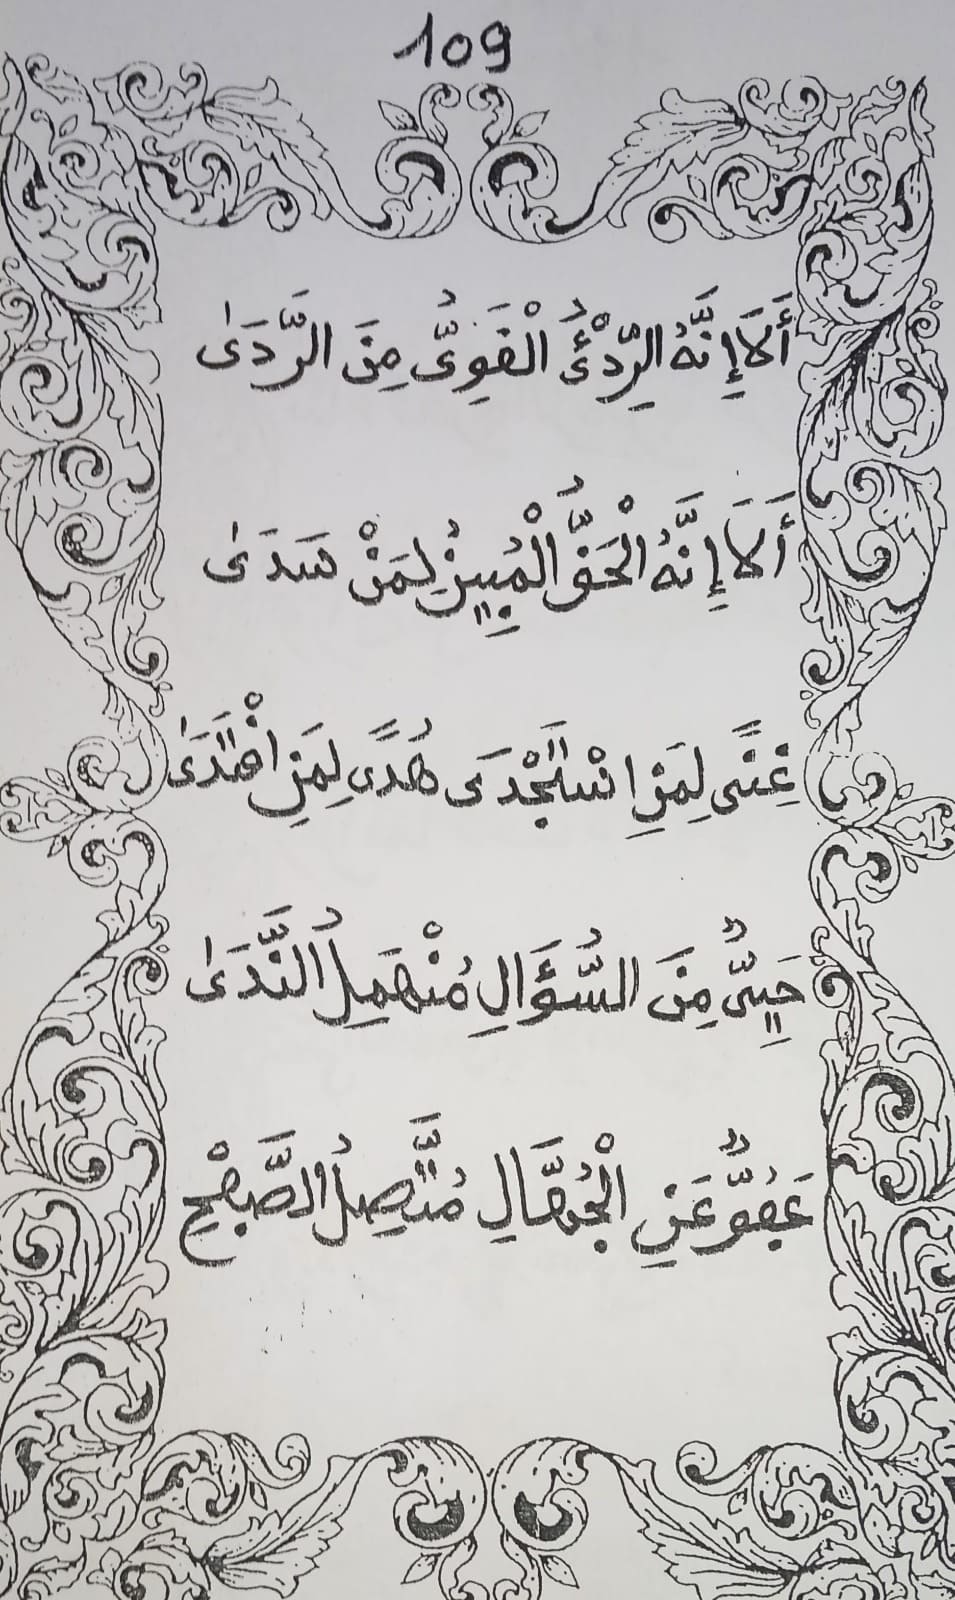 109
أَلَا إِنَّهُ الرِّدْءُ الْقَوِىُّ مِنَ الرَّدَىٰ
أَلَا إِنَّهُ الْحَقُّ الْمُبِينُ لِمَنْ سَدَىٰ
غِنًى لِمَنِ اسْتَجْدَى هُدًى لِمَنِ اهْتَدَىٰ
حَيِىٌّ مِنَ السُّؤَالِ مُنْهَمِلُ النَّدَىٰ
عَفُوٌّ عَنِ الْجُهَّالِ مُتَّصِلُ الصَّفْحِ